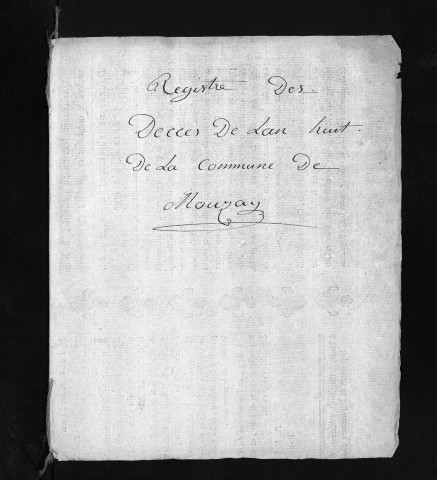 Registre Des
Decces De Lan huit
De La commune De
Mouzay